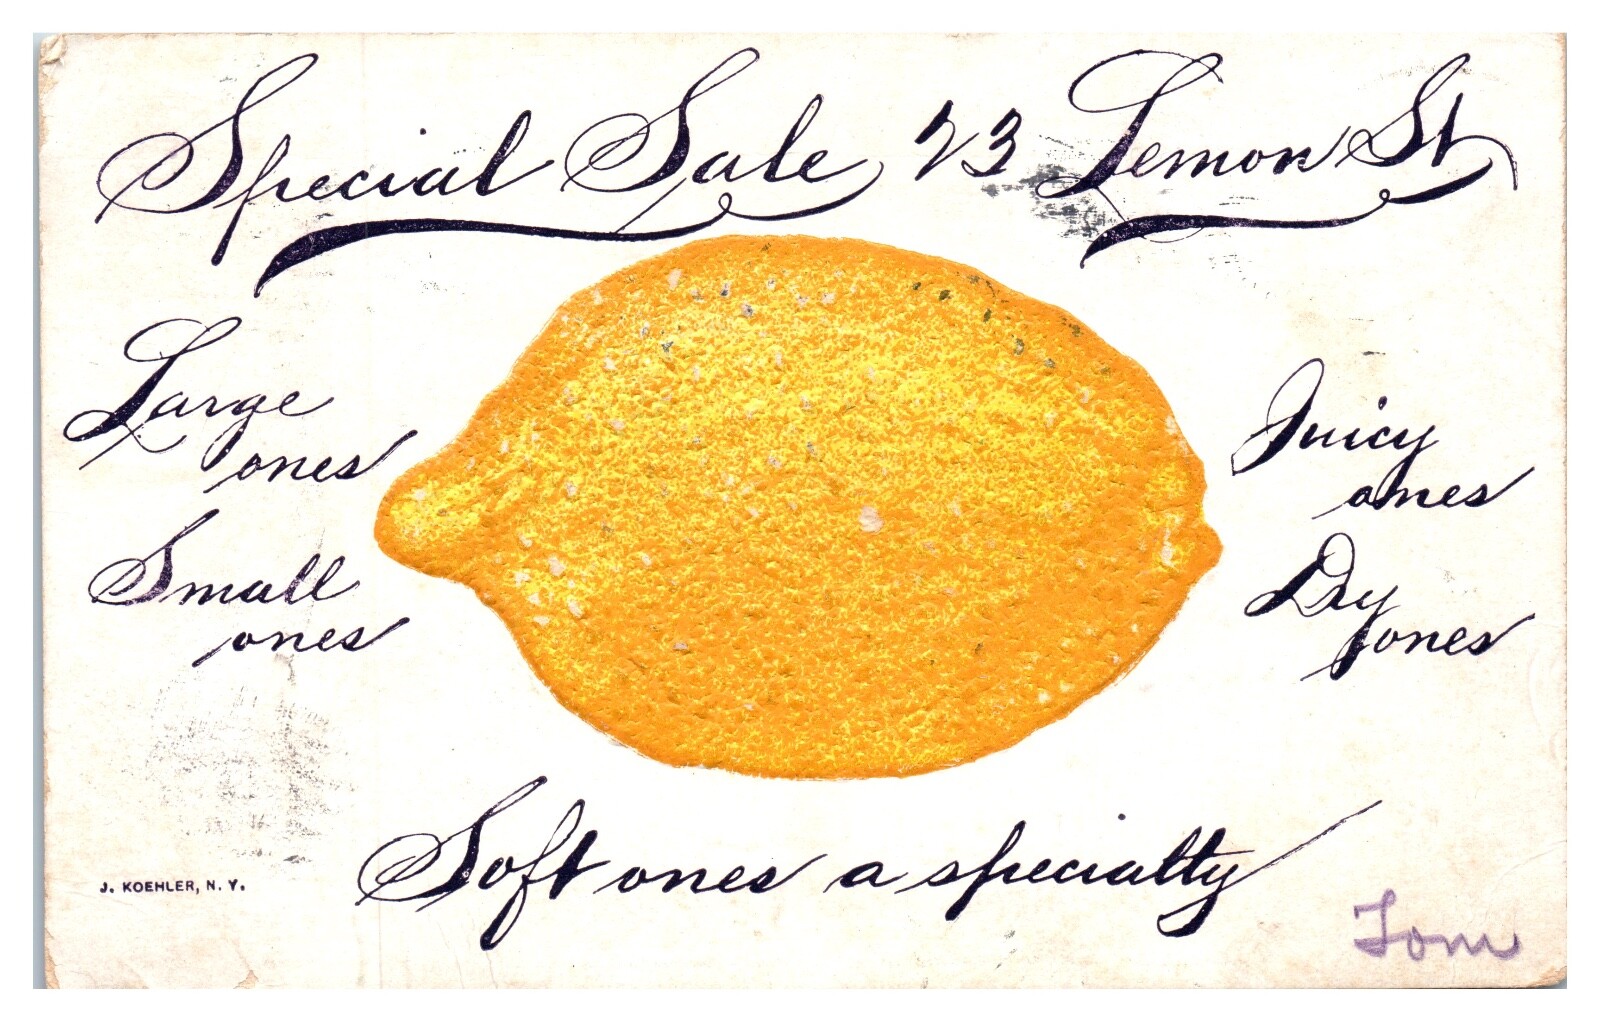 Special Sale 23 Lemon St
Large
ones
Small
ones
Juicy
ones
Dry
ones
Soft ones a specialty
J. KOEHLER, N. Y.
Tom